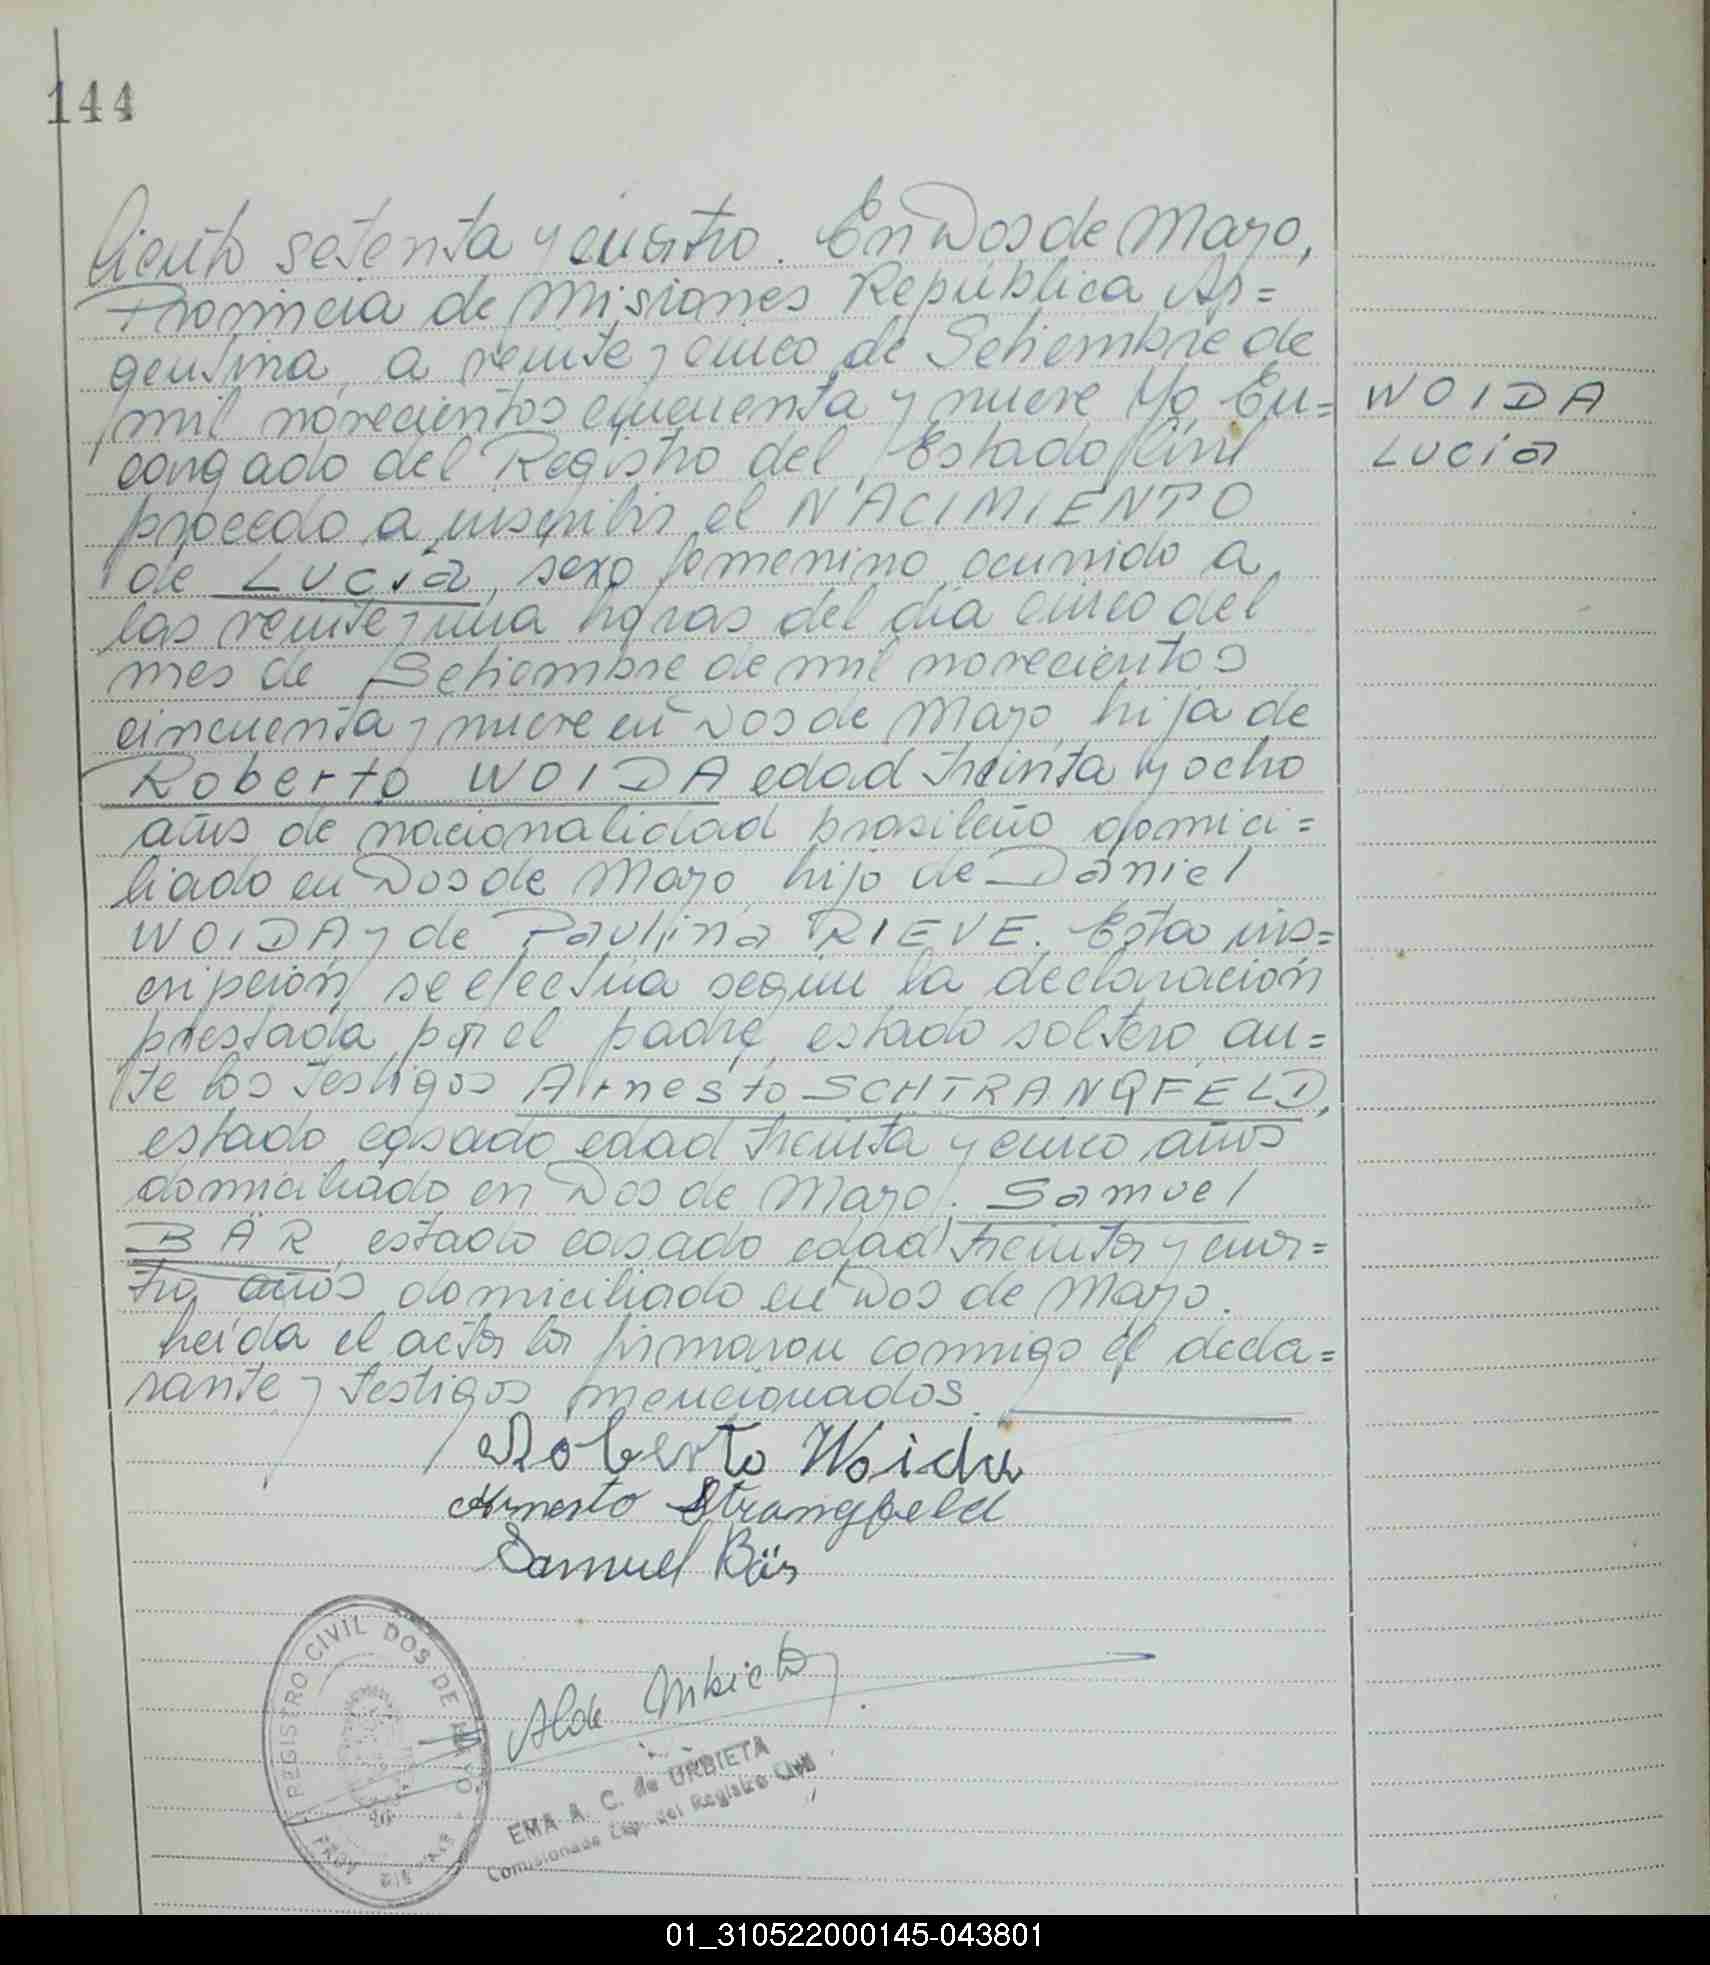 144
Ciento setenta y cuatro. En Dos de Mayo,
Provincia de Misiones República Ar=
gentina, a veinte y cinco de Setiembre de
mil novecientos cincuenta y nueve Yo, En=
WOIDA
cargado del Registro del Estado Civil
Lucía
procedo a inscribir el NACIMIENTO
de Lucía, sexo femenino, ocurrido a
las veinte y una horas del día cinco del
mes de Setiembre de mil novecientos
cincuenta y nueve en Dos de Mayo, hija de
Roberto WOIDA edad treinta y ocho
años de nacionalidad brasileño domici=
liado en Dos de Mayo, hijo de Daniel
WOIDA y de Paulina RIEVE. Esta ins=
cripción, se efectúa según la declaración
prestada por el padre, estado soltero, an=
te los testigos Arnesto SCHTRANGFELD,
estado casado edad treinta y cinco años
domiciliado en Dos de Mayo. Samuel
BÄR, estado casado edad treinta y cua=
tro años domiciliado en Dos de Mayo.
Leída el acta la firmaron conmigo el decla=
rante y testigos mencionados.
Roberto Woida
Arnesto Strangfeld
Samuel Bär
REGISTRO CIVIL DOS DE MAYO
PROV. DE
EMA A. C. de URBIETA
Comisionada Esp. del Registro Civil
01_310522000145-043801